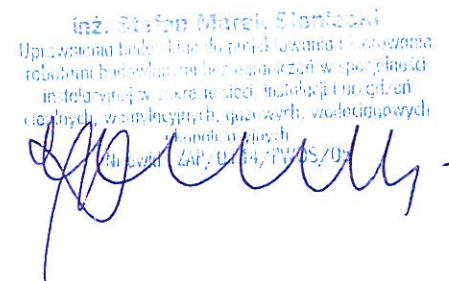 inż. Stefan Marek
Uprawnienia budowlane do projektowania i kierowania
robotami budowlanymi bez ograniczeń w specjalności
instalacyjnej w zakresie sieci, instalacji i urządzeń
cieplnych, wentylacyjnych, gazowych, wodociągowych
i kanalizacyjnych
Nr ewid. ZAP/